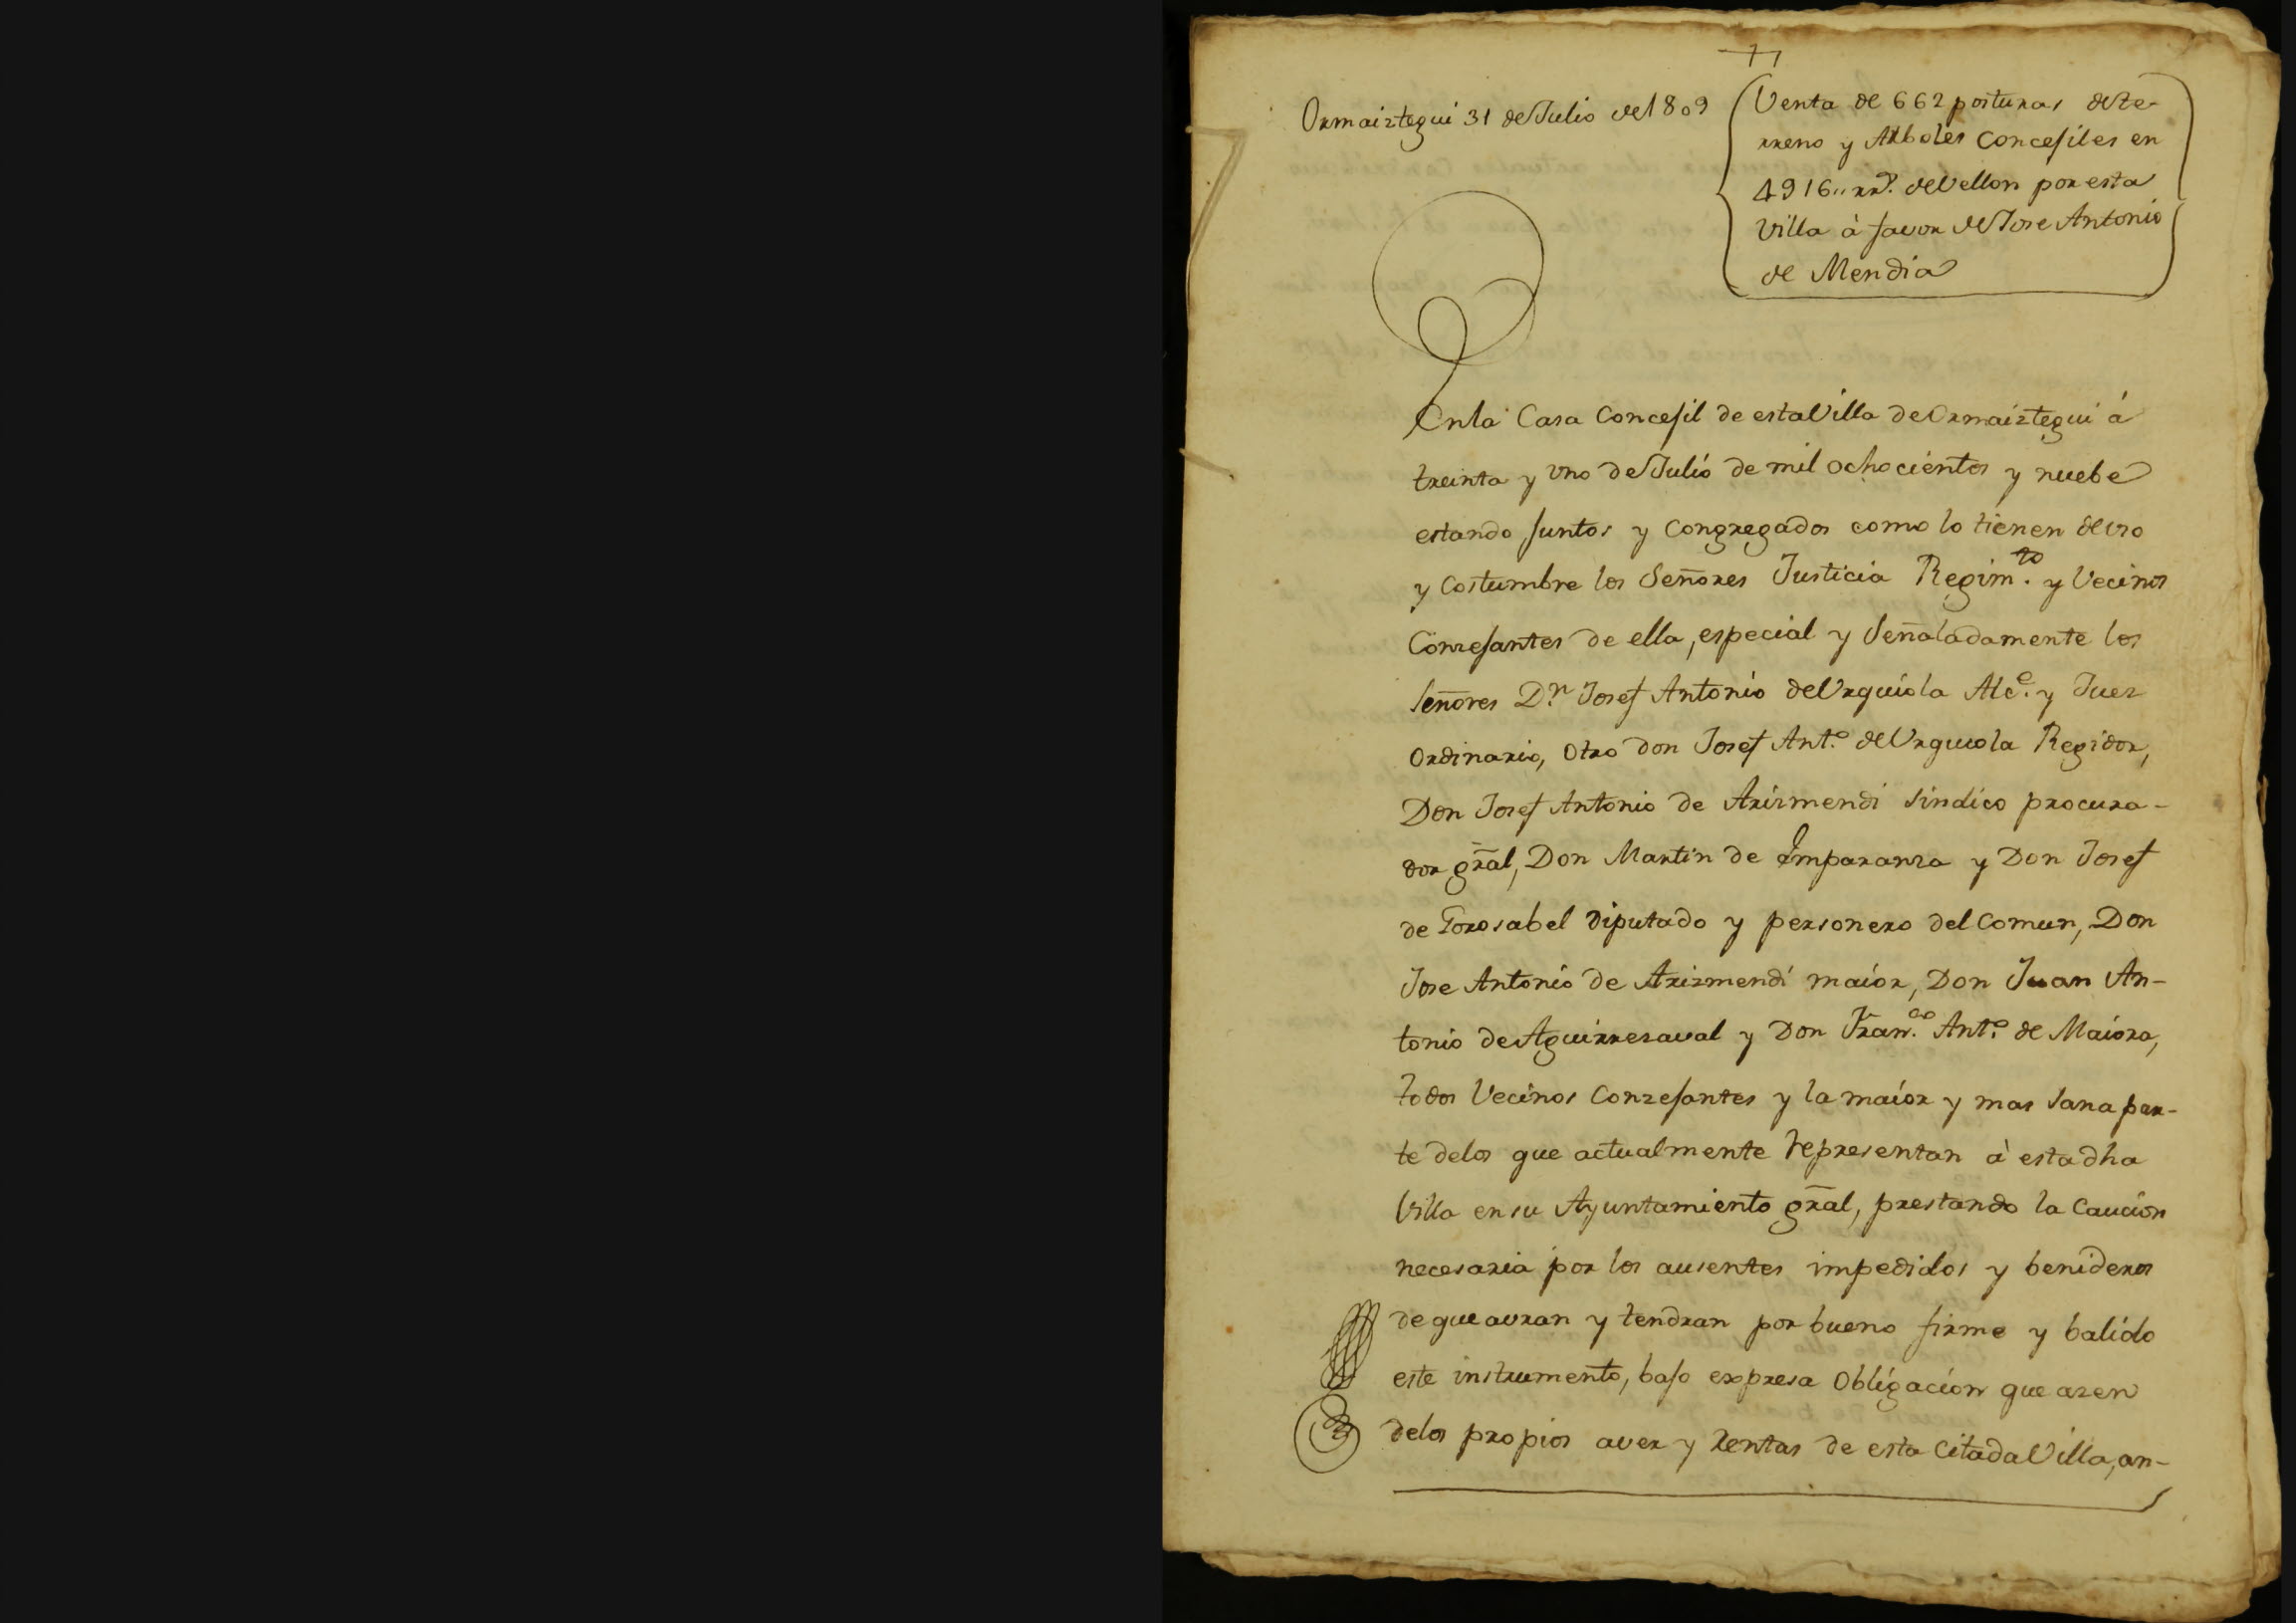 Ormaiztegui 31 de Julio de 1809
Venta de 662 posturas de te-
rreno y Arboles Concejiles en
4916 „ rr.ˢ de Vellon por esta
Villa à favor de Jose Antonio
de Mendia
En la Casa Concejil de esta Villa de Ormaiztegui á
treinta y uno de Julio de mil ochocientos y nuebe
estando juntos y Congregados como lo tienen de uso
y Costumbre los Señores Justicia Regim.to y Vecinos
Conzejantes de ella, especial y Señaladamente los
Señores D.n Josef Antonio de Urquiola Alc.e y Juez
Ordinario, Otro don Josef Ant.o de Urquiola Regidor,
Don Josef Antonio de Arizmendi Sindico procura-
dor gr̃al, Don Martin de Imparanza y Don Josef
de Gorosabel Diputado y personero del Comun, Don
Jose Antonio de Arizmendi maior, Don Juan An-
tonio de Aguirrezaval y Don Fran.co Ant.o de Maiora,
todos Vecinos Conzejantes y la maior y mas Sana par-
te delos que actualmente representan à esta dha
Villa en su Ayuntamiento gr̃al, prestando la Caucion
necesaria por los ausentes impedidos y benideros
de que avran y tendran por bueno firme y balido
este instrumento, bajo expresa Obligacion que azen
delos propios aver y Rentas de esta Citada Villa, an-